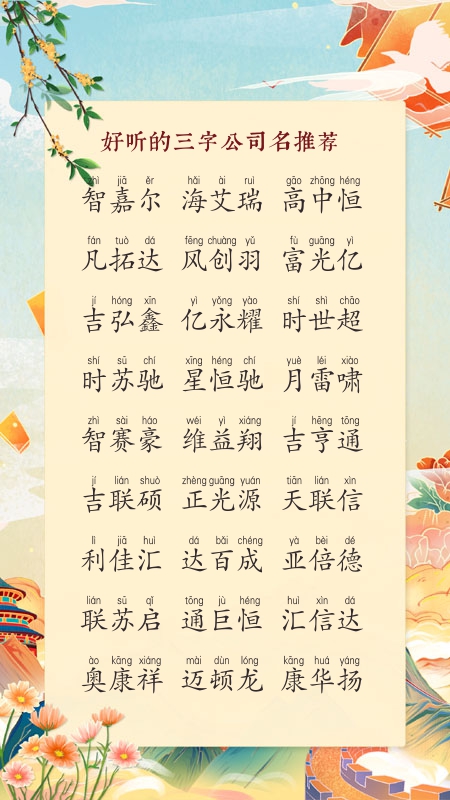 好听的三字公司名推荐
zhì jiā ěr hǎi ài ruì gāo zhōng héng
智嘉尔 海艾瑞 高中恒
fán tuò dá fēng chuàng yǔ fù guāng yì
凡拓达 风创羽 富光亿
jí hóng xīn yì yǒng yào shí shì chāo
吉弘鑫 亿永耀 时世超
shí sū chí xīng héng chí yuè léi xiào
时苏驰 星恒驰 月雷啸
zhì sài háo wéi yì xiáng jí hēng tōng
智赛豪 维益翔 吉亨通
jí lián shuò zhèng guāng yuán tiān lián xìn
吉联硕 正光源 天联信
lì jiā huì dá bǎi chéng yà bèi dé
利佳汇 达百成 亚倍德
lián sū qǐ tōng jù héng huì xìn dá
联苏启 通巨恒 汇信达
ào kāng xiáng mài dùn lóng kāng huá yáng
奥康祥 迈顿龙 康华扬